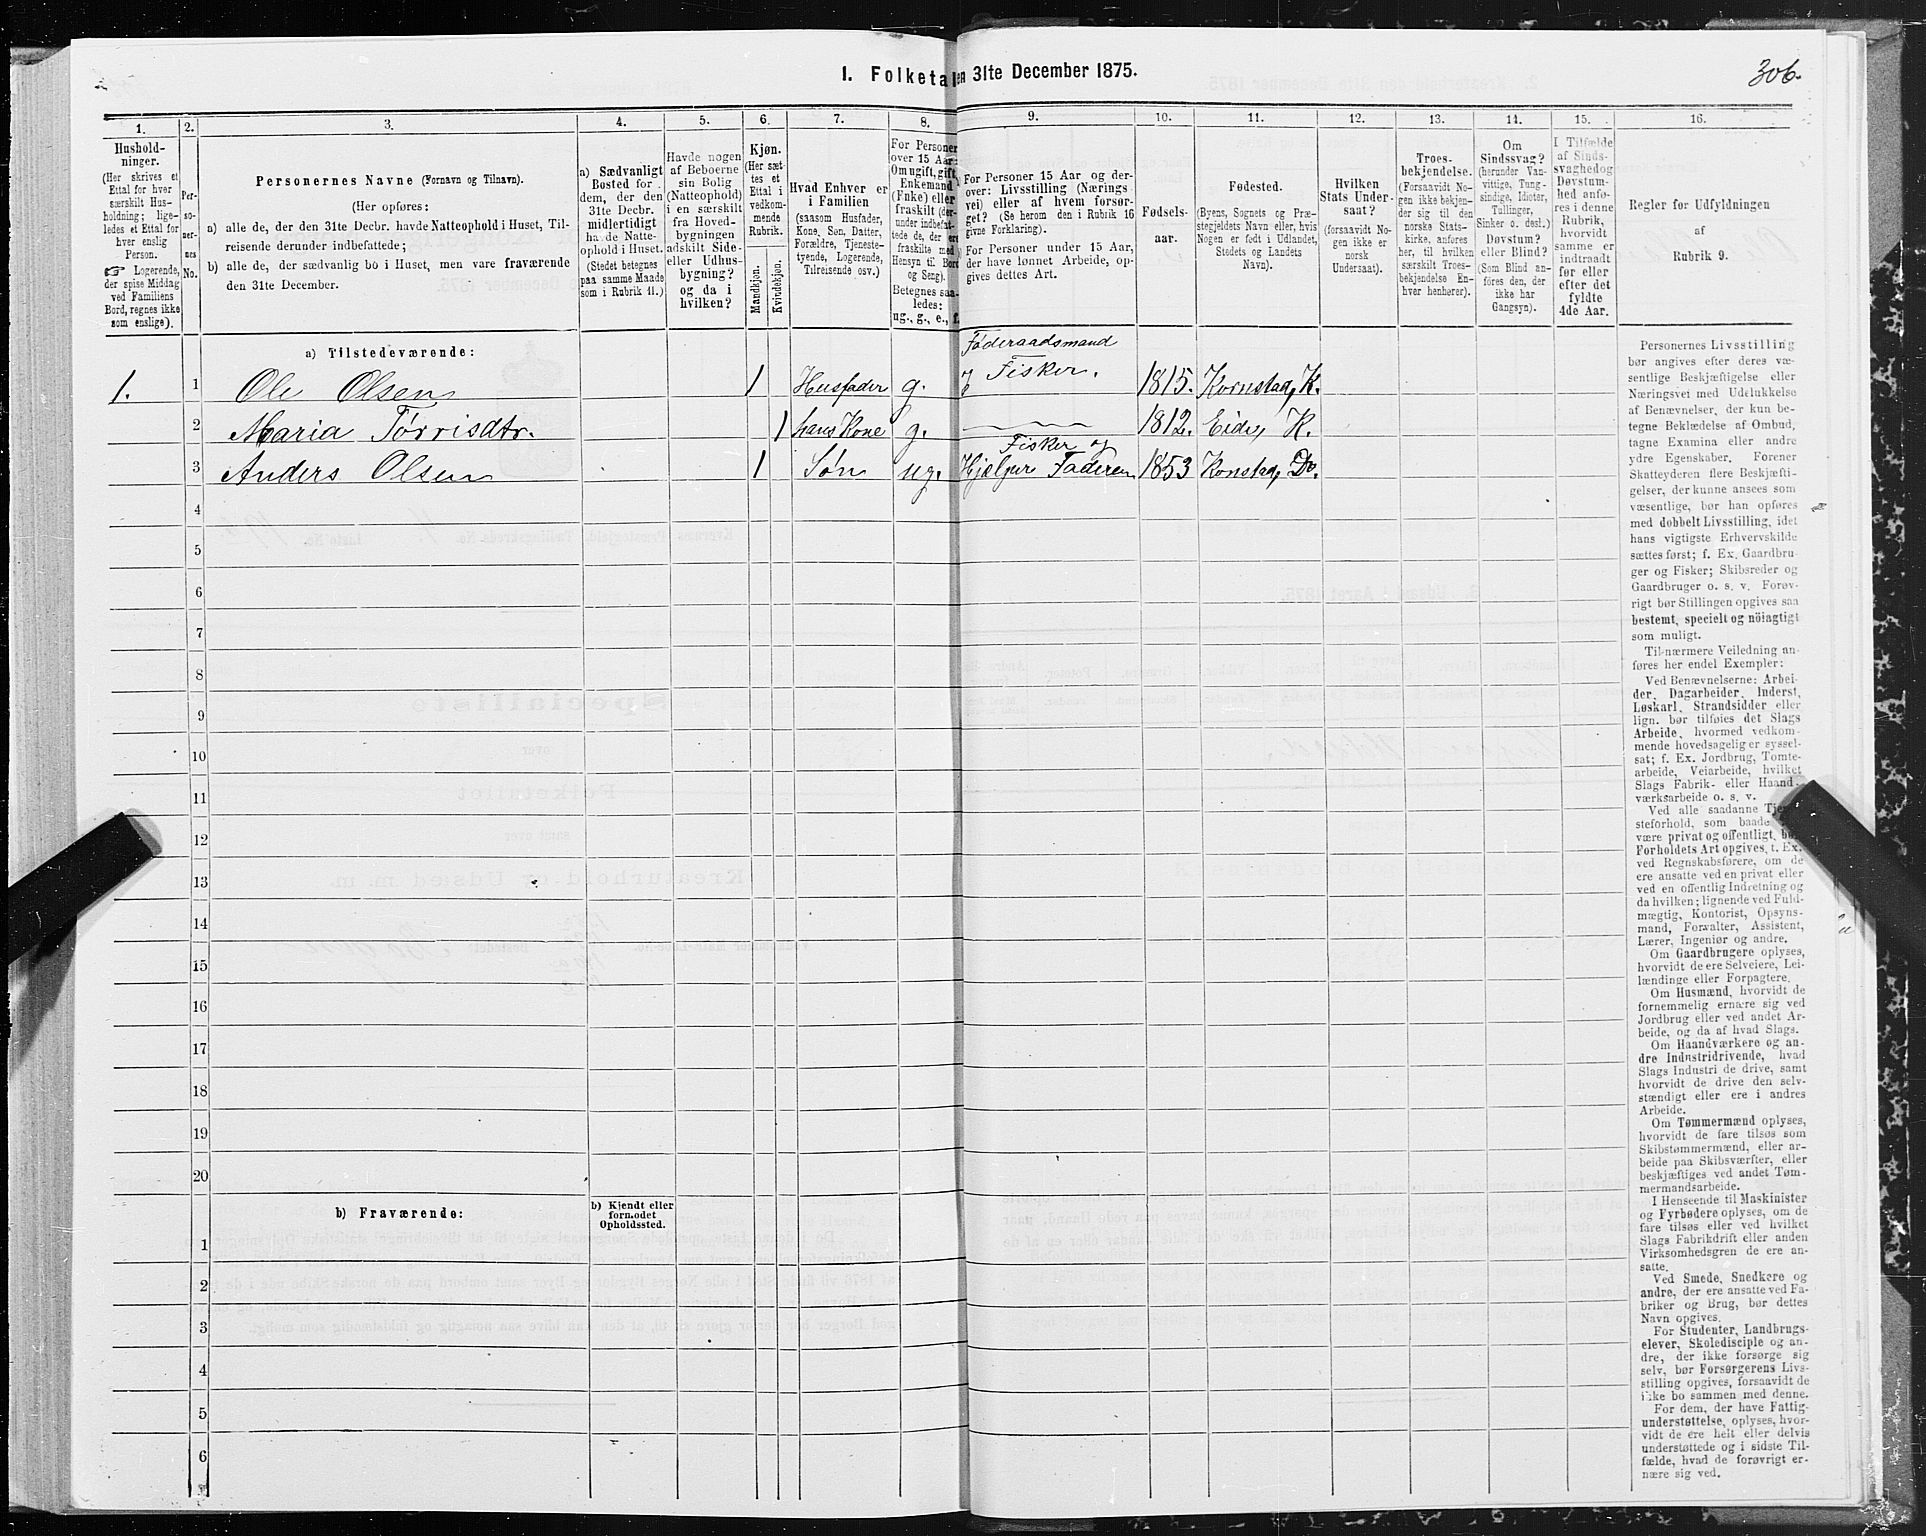 I. Folketal en 31te December 1875.
306.
1.
2.
3.
4.
5.
6.
7.
8.
9.
10.
11.
12.
13.
14.
15.
16.
Hushold-
ninger.
(Her skrives et
Ettal for hver
særskilt Hus-
holdning; lige-
ledes et Ettal for
hver enslig
Person.
☞ Logerende,
der spise Middag
ved Familiens
Bord, regnes ikke
som enslige).
Per-
so-
ner-
nes
No.
Personernes Navne (Fornavn og Tilnavn).
(Her opføres:
a) alle de, der den 31te Decbr. havde Natteophold i Huset, Til-
reisende derunder indbefattede;
b) alle de, der sædvanlig bo i Huset, men vare fraværende
den 31te December.
a) Sædvanligt
Bosted for
dem, der den
31te Decbr.
midlertidigt
havde Natte-
ophold i Huset.
(Stedet betegnes
paa samme Maade
som i Rubrik 11.)
Havde nogen
af Beboerne
sin Bolig
(Natteophold)
i en særskilt
fra Hoved-
bygningen
adskilt Side-
eller Udhus-
bygning?
og da i
hvilken?
Kjøn.
(Her sæt-
tes et
Ettal i
vedkom-
mende
Rubrik.
Mandkjøn.
Kvindekjøn.
Hvad Enhver er
i Familien
(saasom Husfader,
Kone, Søn, Datter,
Forældre, Tjeneste-
tyende, Logerende,
Tilreisende osv.)
For Personer
over 15 Aar:
Om ugift, gift,
Enkemand
(Enke) eller
fraskilt (der-
under indbefat-
tede de, der ere
fraskilte med
Hensyn til Bord
og Seng).
Betegnes saa-
ledes:
ug., g., e., f.
For Personer 15 Aar og der-
over: Livsstilling (Nærings
vei) eller af hvem forsør-
get? (Se herom den i Rubrik 16
givne Forklaring).
For Personer under 15 Aar,
der have lønnet Arbeide, op-
gives dettes Art.
Fødsels-
aar.
Fødested.
(Byens, Sognets og Præ-
stegjeldets Navn eller, hvis
Nogen er født i Udlandet,
Stedets og Landets
Navn).
Hvilken
Stats Under-
saat?
(forsaavidt No-
gen ikke er
norsk
Undersaat).
Troes-
bekjendelse.
(Forsaavidt No-
gen ikke bekjen-
der sig til den
norske Stats-
kirke, anføres
her, til hvilken
særskilt Troes-
bekjendelse En-
hver henhører).
Om
Sindssvag?
(herunder Van-
vittige, Tung-
sindige, Idioter,
Tullinger,
Sinker o. desl.)
Døvstum?
eller Blind?
(Som Blind an-
føres den, der
ikke har
Gangsyn).
I Tilfælde
af Sinds-
svaghed og
Døvstum-
hed anfø-
res i denne
Rubrik,
hvorvidt
samme er
indtraadt
før eller
efter det
fyldte
4de Aar.
Regler for Udfyldningen
af
Rubrik 9.
a) Tilstedeværende:
Føderaadsmand
1. 1 Ole Olsen 1 Husfader g. Fisker. 1815. Kornstad, K.
2 Maria Tørrisdtr. 1 hans Kone g. 1812. Eide, K.
Fisker og
3 Anders Olsen 1 Søn ug. Hjælper Faderen 1853 Konstad, Do.
4
5
6
7
8
9
10
11
12
13
14
15
16
17
18
19
20
b) Fraværende:
b) Kjendt eller
formodet
Opholdssted.
1
2
3
4
5
6
Personernes Livsstilling
bør angives efter deres væ-
sentlige Beskjæftigelse eller
Næringsvei med Udelukkelse
af Benævnelser, der kun be-
tegne Beklædelse af Ombud,
tagne Examina eller andre
ydre Egenskaber. Forener
Skatteyderen flere Beskjæfti-
gelser, der kunne ansees som
væsentlige, bør han opføres
med dobbelt Livsstilling, idet
hans vigtigste Erhvervskilde
sættes først; f. Ex. Gaardbru-
ger og Fisker; Skibsreder og
Gaardbruger o. s. v. Forøv-
rigt bør Stillingen opgives saa
bestemt, specielt og nöiagtigt
som muligt.
Til nærmere Veiledning an-
føres her endel Exempler:
Ved Benævnelserne: Arbei-
der, Dagarbeider, Inderst,
Løskarl, Strandsidder eller
lign. bør tilføies det Slags
Arbeide, hvormed vedkom-
mende hovedsagelig er syssel-
sat; f. Ex. Jordbrug, Tomte-
arbeide, Veiarbeide, hvilket
Slags Fabrik- eller Haand-
værksarbeide o. s. v.
Ved alle saadanne Tjene-
steforhold, som baade
være privat og offentligt, bør
Forholdets Art opgives, f. Ex.
ved Regnskabsførere, om de
ere ansatte ved en privat eller
ved en offentlig Indretning og
da hvilken; lignende ved Fuld-
mægtig, Kontorist, Opsyns-
mand, Forvalter, Assistent,
Lærer, Ingeniør og andre.
Om Gaardbrugere oplyses,
hvorvidt de ere Selveiere, Lei-
lændinge eller Forpagtere.
Om Husmænd, hvorvidt de
fornemmelig ernære sig ved
Jordbrug eller ved andet Ar-
beide, og da af hvad Slags.
Om Haandværkere og an-
dre Industridrivende, hvad
Slags Industri de drive, samt
hvorvidt de drive den selv-
stændigt eller ere i andres
Arbeide.
Om Tømmermænd oplyses,
hvorvidt de fare tilsøs som
Skibstømmermænd, eller ar-
beide paa Skibsværfter, eller
beskjæftiges ved andet Tøm-
mermandsarbeide.
I Henseende til Maskinister
og Fyrbødere oplyses, om de
fare tilsøs eller ved hvilket
Slags Fabrikdrift eller anden
Virksomhedsgren de ere an-
satte.
Ved Smede, Snedkere og
andre, der ere ansatte ved Fa-
briker og Brug, bør dettes
Navn opgives.
For Studenter, Landbrugs-
elever, Skoledisciple og an-
dre, der ikke forsørge sig
selv, bør Forsørgerens Livs-
stilling opgives, forsaavidt de
ikke bo sammen med denne.
For dem, der have Fattig-
understøttelse, oplyses, hvor-
vidt de ere helt eller delvis
understøttede og i sidste Til-
fælde, hvad de forøvrigt er-
nære sig ved.